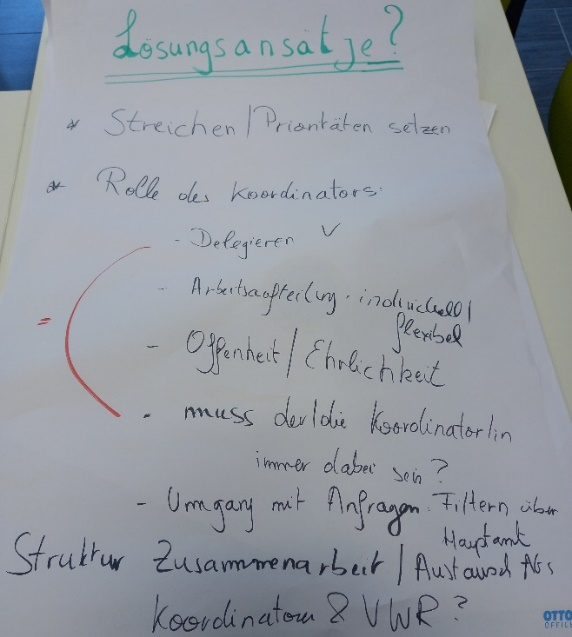 Lösungsansätze?
* Streichen / Prioritäten setzen
* Rolle des Koordinators:
- Delegieren ✓
- Arbeitsaufteilung · individuell /
flexibel
- Offenheit / Ehrlichkeit
=
- muss der/die Koordinator/in
immer dabei sein?
- Umgang mit Anfragen. Filtern über
Hauptamt
Struktur Zusammenarbeit / Austausch AGs
Koordinatoren & VWR?
OTTO
OFFICE